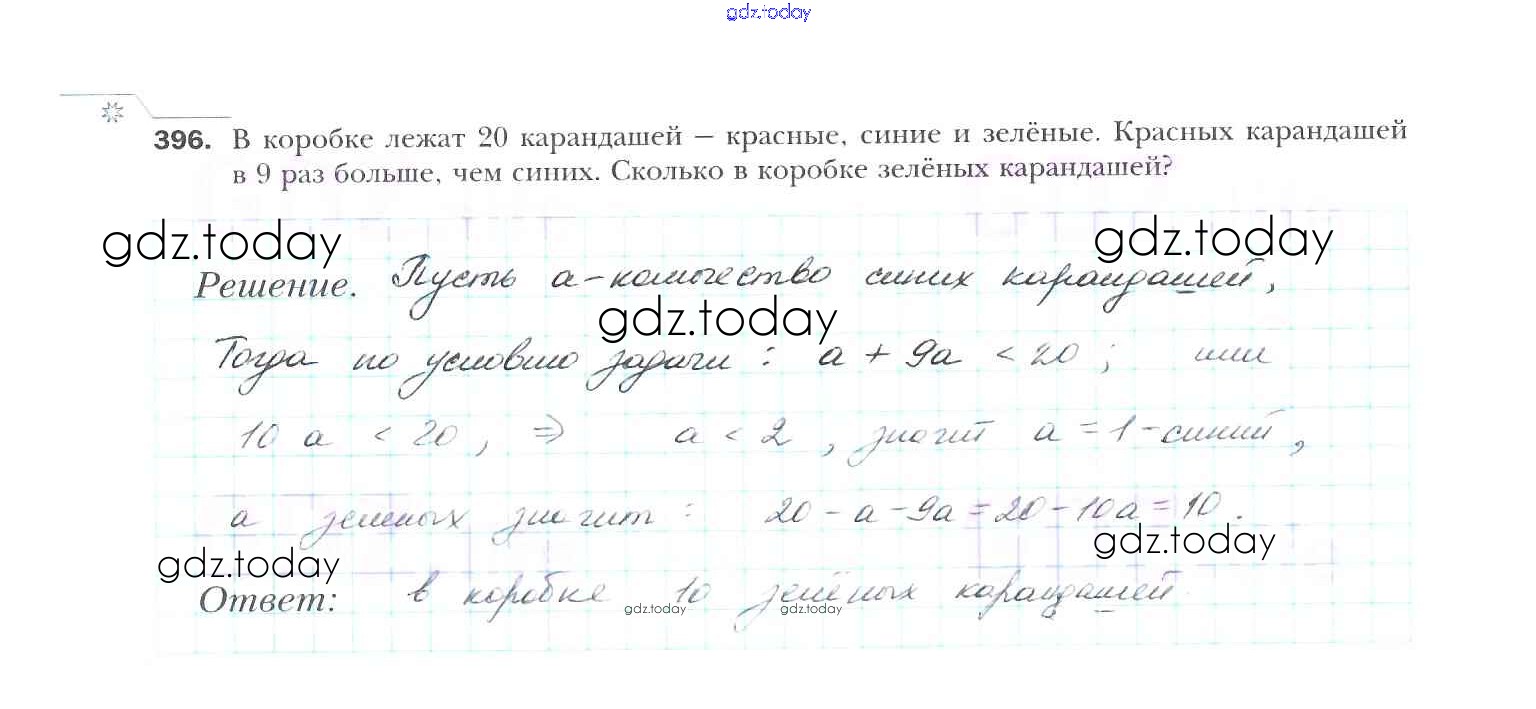 gdz.today
396. В коробке лежат 20 карандашей – красные, синие и зелёные. Красных карандашей
в 9 раз больше, чем синих. Сколько в коробке зелёных карандашей?
gdz.today gdz.today
Решение. Пусть а – количество синих карандашей,
gdz.today
Тогда по условию задачи : а + 9а < 20 ; или
10 а < 20 , ⇒ а < 2 , значит а = 1 – синий ,
а зеленых значит : 20 – а – 9а = 20 – 10а = 10 .
gdz.today gdz.today
Ответ: в коробке 10 зелёных карандашей
gdz.today gdz.today